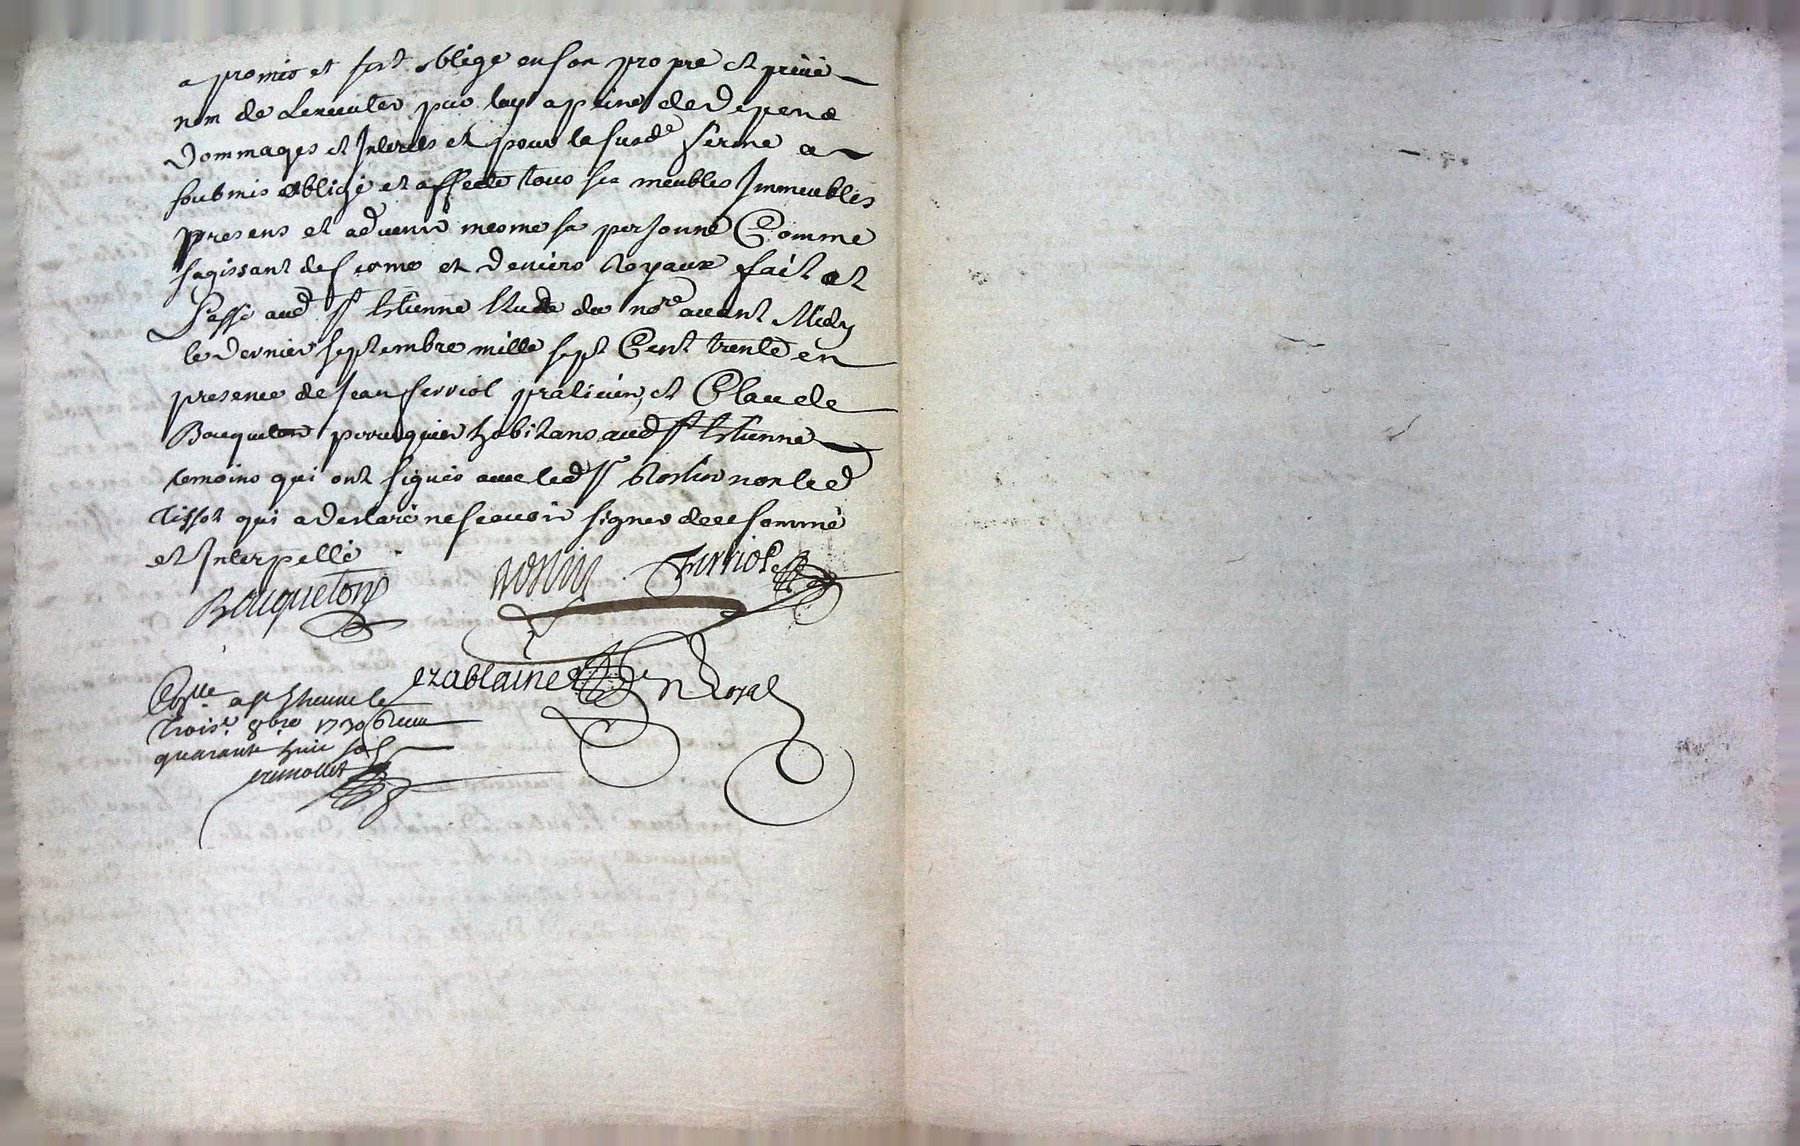 a promis et sest oblige en son propre et privé
nom de Lexecuter par luy a peine de depens
Dommages et Interets et pour la susde ferme a
soubmis obligé et affecté tous ses meubles Immeubles
presens et advenir mesme sa personne Comme
sagissant de ferme et deniers Royaux fait et
Passé aud St Estienne Etude du nore avant Midy
le dernier septembre mille sept Cent trente en
presence de Jean ferriol praticien, et Claude
Bouqueton perruquier habitans aud St Estienne
temoins qui ont signés avec led Sr Ronin non led
Tissot qui a declaré ne scavoir signer de ce sommé
et Interpellé
Bouqueton Ronin Ferriol
Ezablaine nre Royal
Conlle a St Etienne le
Trois. 8bre 1730 Receu
quarante huit sols